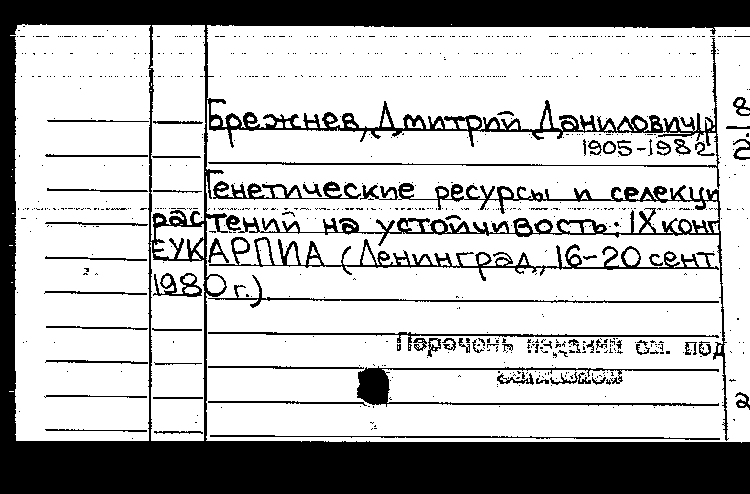 Брежнев, Дмитрий Данилович,
1905-1982
Генетические ресурсы и селекци
растений на устойчивость: IX конг
ЕУКАРПИА (Ленинград, 16-20 сент.
1980 г.).
Перечень изданий см. под
заглавием